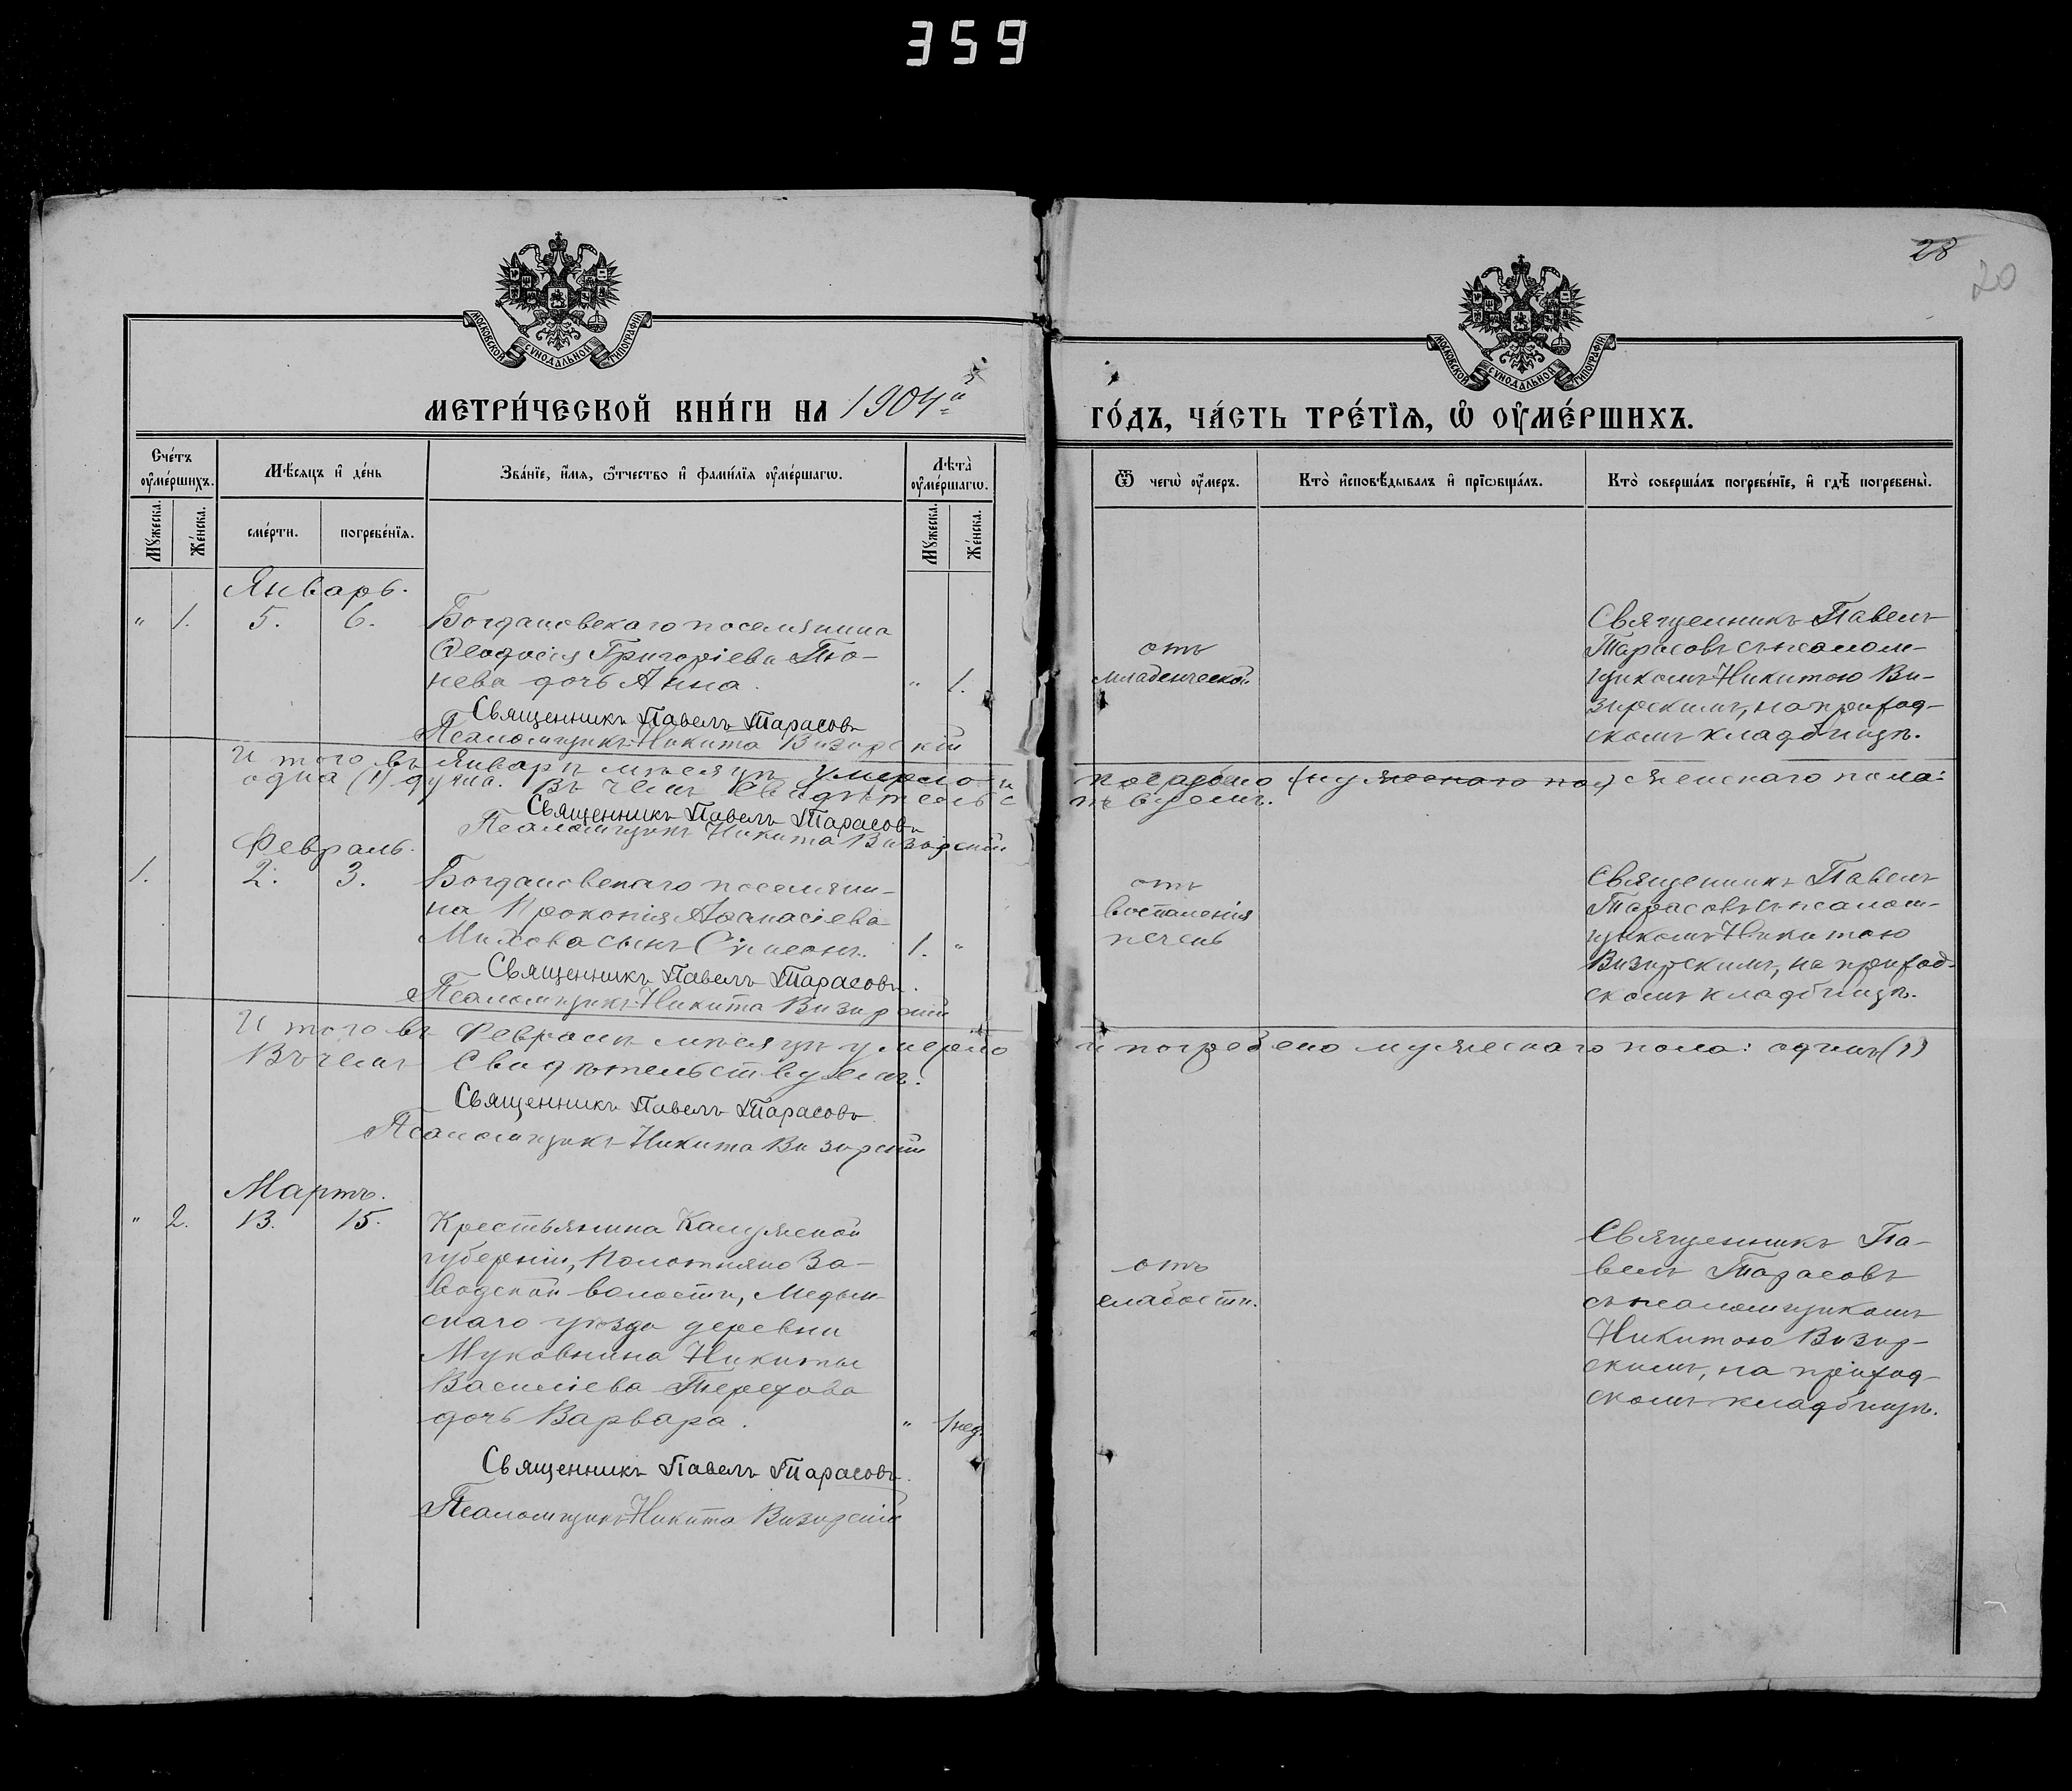 359
28
20
МОСКОВСКОЙ СѴНОДАЛЬНОЙ ТИПОГРАФІИ
МОСКОВСКОЙ СѴНОДАЛЬНОЙ ТИПОГРАФІИ
МЕТРИ́ЧЕСКОЙ КНИ́ГИ НА 1904й
ГО́ДЪ, ЧА́СТЬ ТРЕ́ТІѦ, Ѡ҆ ОУ҆МЕ́РШИХЪ.
Сче́тъ оу҆ме́ршихъ.
Мѣ́сяцъ и҆ де́нь
Зва́ніе, и҆́мѧ, ѻ҆́тчество и҆ фами́лїѧ оу҆ме́ршагѡ.
Лѣ́та оу҆ме́ршагѡ.
Ѿ чегѡ̀ оу҆́меръ.
Кто̀ и҆сповѣ́дывалъ и҆ прїѡбща́лъ.
Кто̀ соверша́лъ погребе́нїе, и҆ гдѣ̀ погребены̀.
Мꙋ́жеска.
Же́нска.
сме́рти.
погребе́нїѧ.
Мꙋ́жеска.
Же́нска.
Январь.
" 1. 5. 6. Богдановскаго поселянина
Ѳеодосія Григоріева Тю-
нева дочь Анна. " 1.
Священникъ Павелъ Тарасовъ
Псаломщикъ Никита Визирскій
отъ
младенческой
Священникъ Павелъ
Тарасовъ съ псалом-
щикомъ Никитою Ви-
зирскимъ, на приход-
скомъ кладбищѣ.
Итого въ Январѣ мѣсяцѣ умерло и погребено (мужескаго пол) женскаго пола:
одна (1) душа. Въ чемъ свидѣтельствуемъ.
Священникъ Павелъ Тарасовъ
Псаломщикъ Никита Визирскій
Февраль.
1. 2. 3. Богдановскаго поселяни-
на Прокопія Аѳанасіева
Михова сынъ Симеонъ. 1. "
Священникъ Павелъ Тарасовъ.
Псаломщикъ Никита Визирскій
отъ
воспаленія
печень
Священникъ Павелъ
Тарасовъ съ псалом-
щикомъ Никитою
Визирскимъ, на приход-
скомъ кладбищѣ.
Итого въ Февралѣ мѣсяцѣ умерло и погребено мужескаго пола: одинъ (1)
Въ чемъ свидѣтельствуемъ.
Священникъ Павелъ Тарасовъ.
Псаломщикъ Никита Визирскій
Мартъ.
" 2. 13. 15. Крестьянина Калужской
губерніи, Полотняно За-
водской волости, Медын-
скаго уѣзда деревни
Муковнина Никиты
Василіева Терехова
дочь Варвара. " 1 нед.
Священникъ Павелъ Тарасовъ.
Псаломщикъ Никита Визирскій
отъ
слабости.
Священникъ Па-
велъ Тарасовъ
съ псаломщикомъ
Никитою Визир-
скимъ, на приход-
скомъ кладбищѣ.